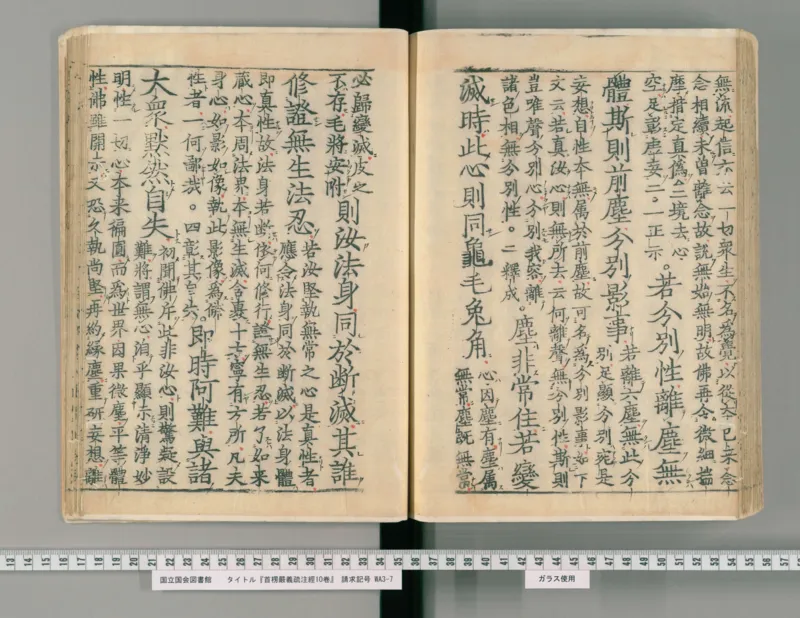 無流起信亦云一切衆生不名為覺以從本已来念
念相續未曾離念故說無始無明故佛再令微細揣
摩揩定真僞二境去心
空足彰虛妄二。一正示。若分別性離塵無
體斯則前塵分別影事
若離六塵無此分
別足顯分別宛是
妄想自性本無属於前塵故可名為分別影事如下
文云若真汝心則無所去云何離聲無分別性斯則
豈唯聲分別心分別我容離
諸色相無分別性。二釋成。塵非常住若變
滅時此心則同龜毛兔角
心因塵有塵属
無常塵既無常
必歸變滅皮之
不存毛將安附
則汝法身同於断滅其誰
修證無生法忍
若汝堅執無常之心是真性者
應念法身同於斷滅以法身體
即真性故法身若断依何修行證無生忍若了如来
藏心本周法界本無生滅含裹十方寧有方所凡夫
身心如影如像執此影像為
性者一何鄙哉。四彰其亡失。即時阿難與諸
大衆默然自失
初聞佛斥此非汝心則驚疑設
難將謂無心洎乎顯示清淨妙
明性一切心本来徧圓而為世界因果微塵平等體
性佛雖開示又恐久執尚堅再約緣塵重研妄想離
国立国会図書館 タイトル『首楞嚴義疏注經10巻』 請求記号 WA3-7
ガラス使用